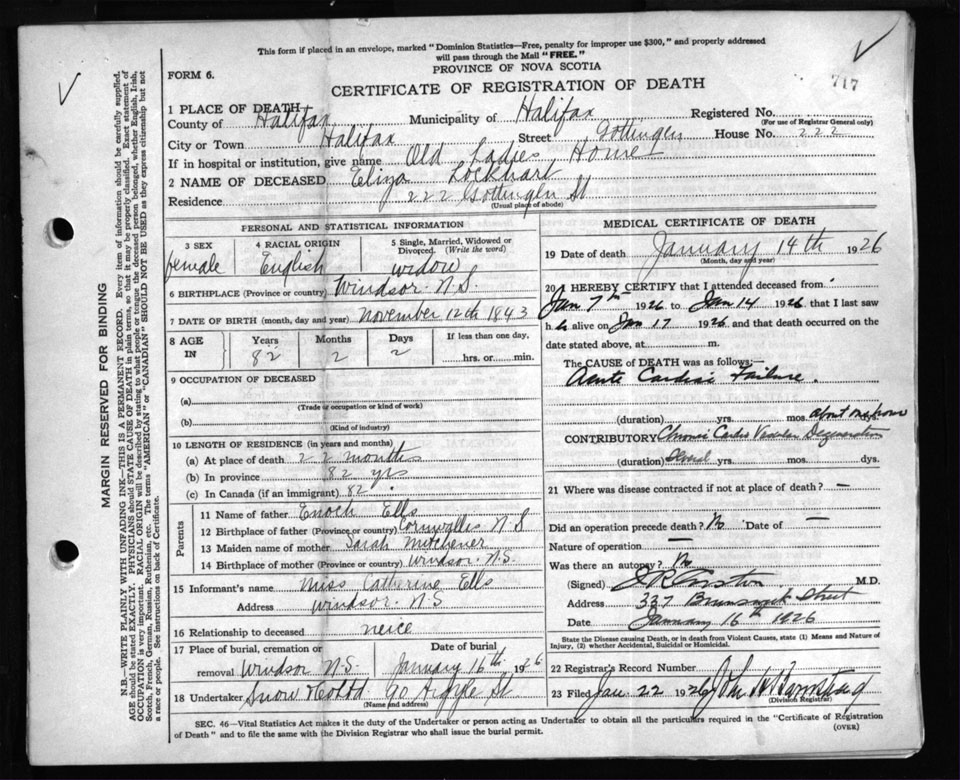 This form if placed in an envelope, marked "Dominion Statistics—Free, penalty for improper use $300," and properly addressed
will pass through the Mail "FREE."
PROVINCE OF NOVA SCOTIA
FORM 6.
CERTIFICATE OF REGISTRATION OF DEATH
717
1 PLACE OF DEATH
County of Halifax Municipality of Halifax Registered No.
(For use of Registrar General only)
City or Town Halifax Street Gottingen House No. 222
If in hospital or institution, give name Old Ladies Home
2 NAME OF DECEASED Eliza Lockhart
Residence 222 Gottingen St
(Usual place of abode)
PERSONAL AND STATISTICAL INFORMATION
3 SEX 4 RACIAL ORIGIN 5 Single, Married, Widowed or
Divorced. (Write the word)
female English widow
6 BIRTHPLACE (Province or country) Windsor N.S.
7 DATE OF BIRTH (month, day and year) November 12th 1843
8 AGE IN Years Months Days If less than one day,
82 2 2 hrs. or min.
9 OCCUPATION OF DECEASED
(a)
(Trade or occupation or kind of work)
(b)
(Kind of industry)
10 LENGTH OF RESIDENCE (in years and months)
(a) At place of death 22 months
(b) In province 82 yrs
(c) In Canada (if an immigrant) 82
Parents
11 Name of father Enoch Ells
12 Birthplace of father (Province or country) Cornwallis N S
13 Maiden name of mother Sarah Mitchener
14 Birthplace of mother (Province or country) Windsor N.S.
15 Informant's name Miss Catherine Ells
Address Windsor N.S
16 Relationship to deceased neice
17 Place of burial, cremation or Date of burial
removal Windsor N.S. January 16th 1926
18 Undertaker Snow & Co Ltd 90 Argyle St
(Name and address)
MEDICAL CERTIFICATE OF DEATH
19 Date of death January 14th 1926
(Month, day and year)
20 I HEREBY CERTIFY that I attended deceased from
Jan 7th 1926 to Jan 14 1926 that I last saw
h alive on Jan 17 1926 and that death occurred on the
date stated above, at m.
The CAUSE OF DEATH was as follows:—
Acute Cardiac Failure.
(duration) yrs. mos. about one hour
CONTRIBUTORY Chronic Cardio Vascular Degeneration
(duration) Several yrs. mos. dys.
21 Where was disease contracted if not at place of death? —
Did an operation precede death? No Date of —
Nature of operation —
Was there an autopsy? No
(Signed) M.D.
Address 337 Brunswick Street
Date January 16th 1926
State the Disease causing Death, or in death from Violent Causes, state (1) Means and Nature of
Injury, (2) whether Accidental, Suicidal or Homicidal.
22 Registrar's Record Number
23 Filed Jan 22 1926 John
(Division Registrar)
SEC. 46—Vital Statistics Act makes it the duty of the Undertaker or person acting as Undertaker to obtain all the particulars required in the "Certificate of Registration
of Death" and to file the same with the Division Registrar who shall issue the burial permit.
(OVER)
MARGIN RESERVED FOR BINDING
N.B.—WRITE PLAINLY WITH UNFADING INK—THIS IS A PERMANENT RECORD. Every item of information should be carefully supplied.
AGE should be stated EXACTLY. PHYSICIANS should STATE CAUSE OF DEATH in plain terms, so that it may be properly classified. Exact statement of
OCCUPATION is very important. RACIAL ORIGIN will be described by stating to what people or tongue the deceased person belonged, whether English, Irish,
Scotch, French, German, Russian, Ruthenian, etc. The terms "AMERICAN" or "CANADIAN" SHOULD NOT BE USED as they express citizenship but not
a race or people. See instructions on back of Certificate.